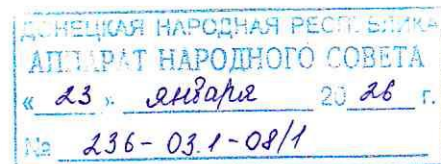 ДОНЕЦКАЯ НАРОДНАЯ РЕСПУБЛИКА
АППАРАТ НАРОДНОГО СОВЕТА
« 23 » января 20 26 г.
№ 236-03.1-08/1